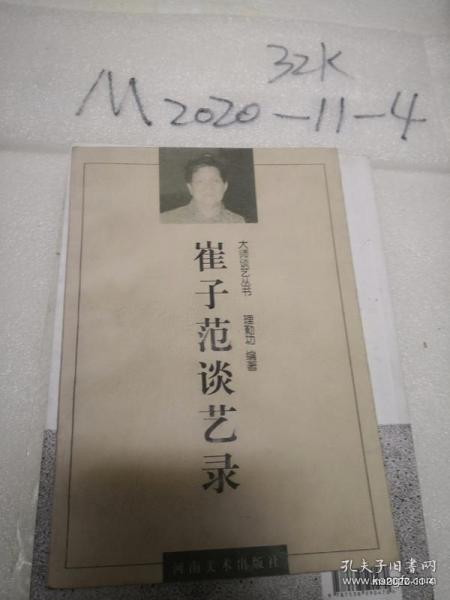 32K
M2020-11-4
崔子范谈艺录
大师谈艺丛书 理勤功 编著
河南美术出版社
孔夫子旧书网